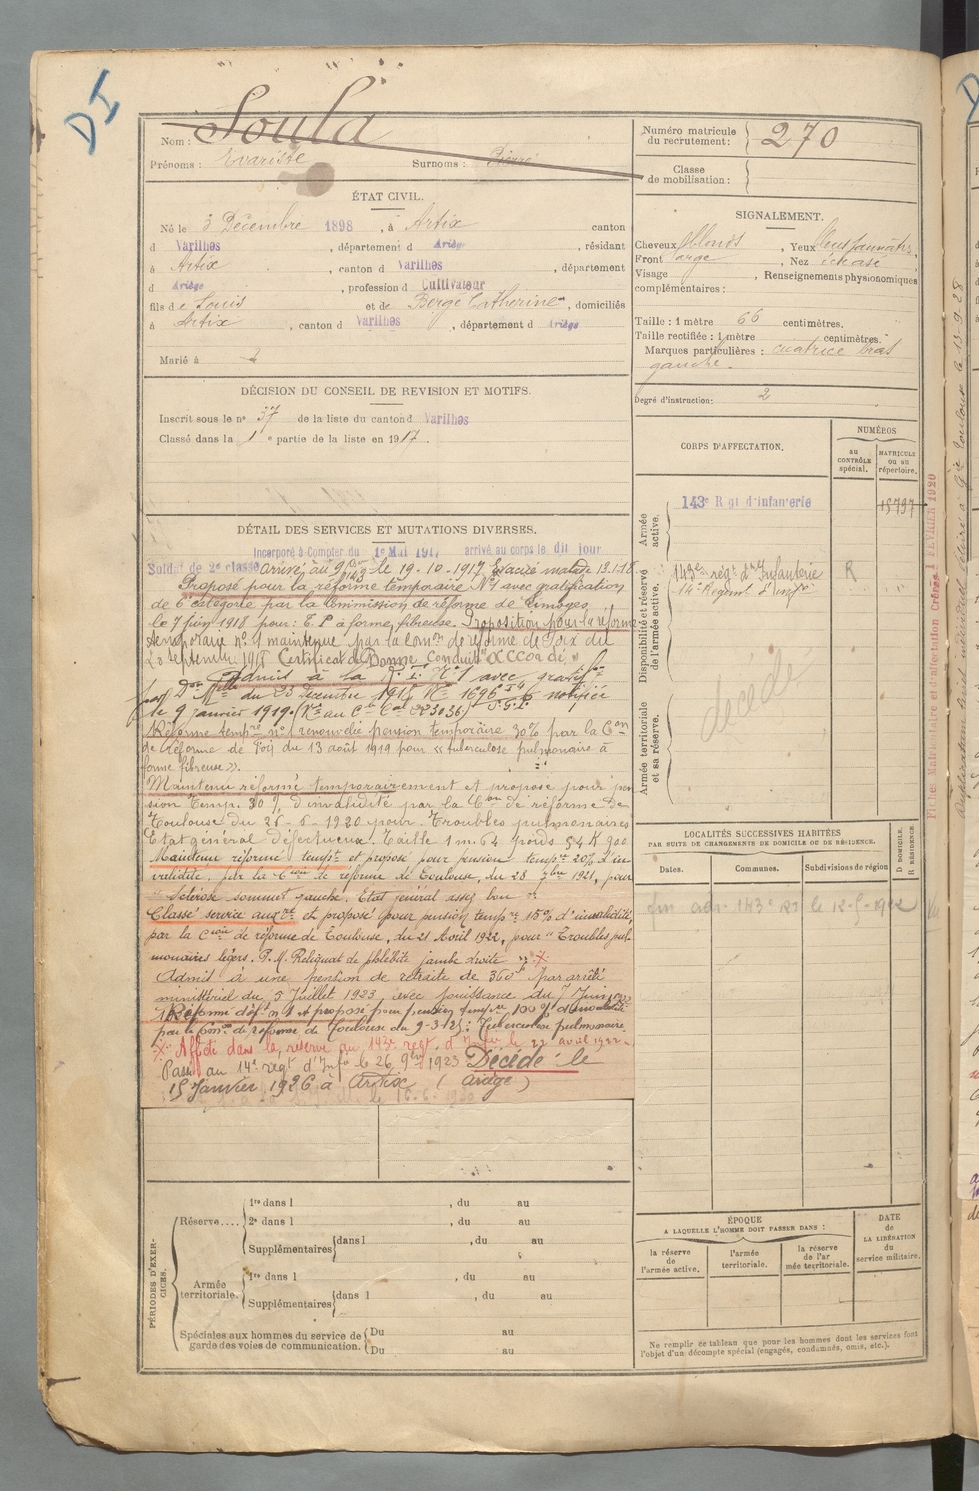 DI
Nom : Soula
Prénoms : Evariste Surnoms : Pierre
ÉTAT CIVIL.
Né le 3 Décembre 1898, à Artix canton
d Varilhes, département d Ariège, résidant
à Artix, canton d Varilhes, département
d Ariège, profession d Cultivateur
fils de Louis et de Berge Catherine, domiciliés
à Artix, canton d Varilhes, département d Ariège
Marié à
DÉCISION DU CONSEIL DE REVISION ET MOTIFS.
Inscrit sous le n° 37 de la liste du canton d Varilhes
Classé dans la 1e partie de la liste en 1917.
DÉTAIL DES SERVICES ET MUTATIONS DIVERSES.
Incorporé à Compter du 1er Mai 1917 arrivé au corps le dit jour
Soldat de 2e classe arrivé au le 19-10-1917 Evacué malade 13.1.18
Proposé pour la réforme temporaire N°1 avec gratification
de 6 catégorie par la Commission de réforme de Limoges
le 7 juin 1918 pour : T. P à forme fibreuse. Proposition pour la réforme
temporaire n° 1 maintenue par la Comon de réforme de Foix du
20 septembre 1918 Certificat de Bonne Conduite "accordé"
Admis à la R. T. N°1 avec gratifon
par Don Melle du 23 Décembre 1918 N° 1696 notifiée
le 9 janvier 1919.
Réforme tempre n°1 renouvelée pension temporaire 30% par la Con
de Réforme de Foix du 13 août 1919 pour « tuberculose pulmonaire à
forme fibreuse ».
Maintenu réformé temporairement et proposé pour pen
sion Temp. 30% d'invalidité par la Con de réforme de
Toulouse du 1920 pour Troubles pulmonaires
Etat général défectueux. Taille 1 m. 64 poids 54 K 900
Maintenu réformé tempre et proposé pour pension tempre 20% d'in-
validité, par la Cion de réforme de Toulouse, du 28 1921, pour
" Sclérose sommet gauche. Etat général assez bon "
Classé service auxre et proposé pour pension tempre 15% d'invalidité
par la Cion de réforme de Toulouse, du 21 Avril 1922, pour " Troubles pul-
monaires légers. P. M. Reliquat de phlébite jambe droite "
Admis à une pension de retraite de 360f par arrêté
ministériel du 5 Juillet 1923, avec jouissance du 7 Juin
Réformé défif n°1 et proposé pour pension tempre 100% d'invalidité
par la Comon de réforme de Toulouse du 9-3-25 : Tuberculose pulmonaire
Affecté dans la réserve au 143e régt d'Infie le 22 avril 1922.
Passé au 14e régt d'Infie le 26 9bre 1923 Décédé le
15 Janvier 1926 à Artix (Ariège)
PÉRIODES D'EXER-
CICES.
Réserve....
1re dans l , du au
2e dans l , du au
Supplémentaires dans l , du au
Armée
territoriale.
1re dans l , du au
Supplémentaires dans l , du au
Spéciales aux hommes du service de
garde des voies de communication.
Du au
Du au
Numéro matricule
du recrutement : 270
Classe
de mobilisation :
SIGNALEMENT.
Cheveux blonds, Yeux bleus jaunâtres,
Front large, Nez écrasé
Visage , Renseignements physionomiques
complémentaires :
Taille : 1 mètre 66 centimètres.
Taille rectifiée : 1 mètre centimètres.
Marques particulières : cicatrice bras
gauche.
Degré d'instruction : 2
CORPS D'AFFECTATION.
NUMÉROS
au
CONTRÔLE
spécial.
MATRICULE
ou au
répertoire.
Armée
active.
143e Rgt d'Infanterie 15797
Disponibilité et réserve
de l'armée active.
143e régt d'Infanterie R
14e Régiment d'Infie
Armée territoriale
et sa réserve.
décédé
LOCALITÉS SUCCESSIVES HABITÉES
PAR SUITE DE CHANGEMENTS DE DOMICILE OU DE RÉSIDENCE.
Dates. Communes. Subdivisions de région
D DOMICILE.
R RÉSIDENCE
143e RI le
ÉPOQUE
A LAQUELLE L'HOMME DOIT PASSER DANS :
la réserve
de
l'armée active.
l'armée
territoriale.
la réserve
de l'ar
mée territoriale.
DATE
de
LA LIBÉRATION
du
service militaire.
Ne remplir ce tableau que pour les hommes dont les services font
l'objet d'un décompte spécial (engagés, condamnés, omis, etc.).
Fiches Matriculaire et d'affectation Créées FÉVRIER 1920